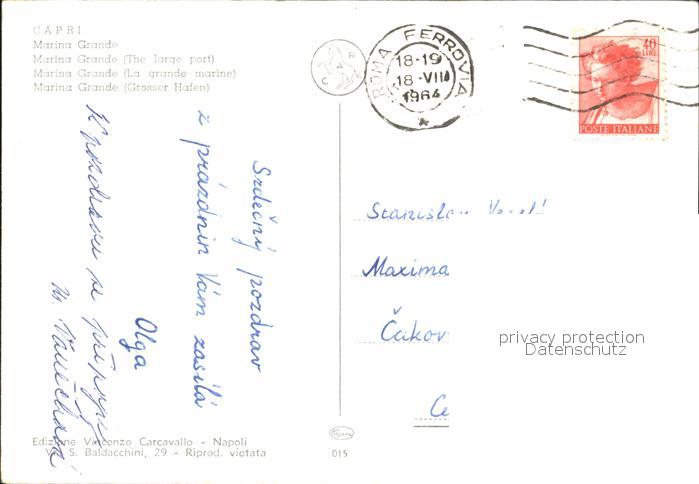 CAPRI
Marina Grande
Marina Grande (The large port)
Marina Grande (La grande marine)
Marina Grande (Grosser Hafen)
C A R
ROMA FERROVIA
18-19
18-VIII
1964
40
LIRE
POSTE ITALIANE
Srdečný pozdrav
z prázdnin Vám zasílá
Olga
K pozdravu se připojuje
M. Vaněčková
Stanislav
Maxima
Čakov
Ce
privacy protection
Datenschutz
Edizione Vincenzo Carcavallo - Napoli
Via S. Baldacchini, 29 - Riprod. vietata
015